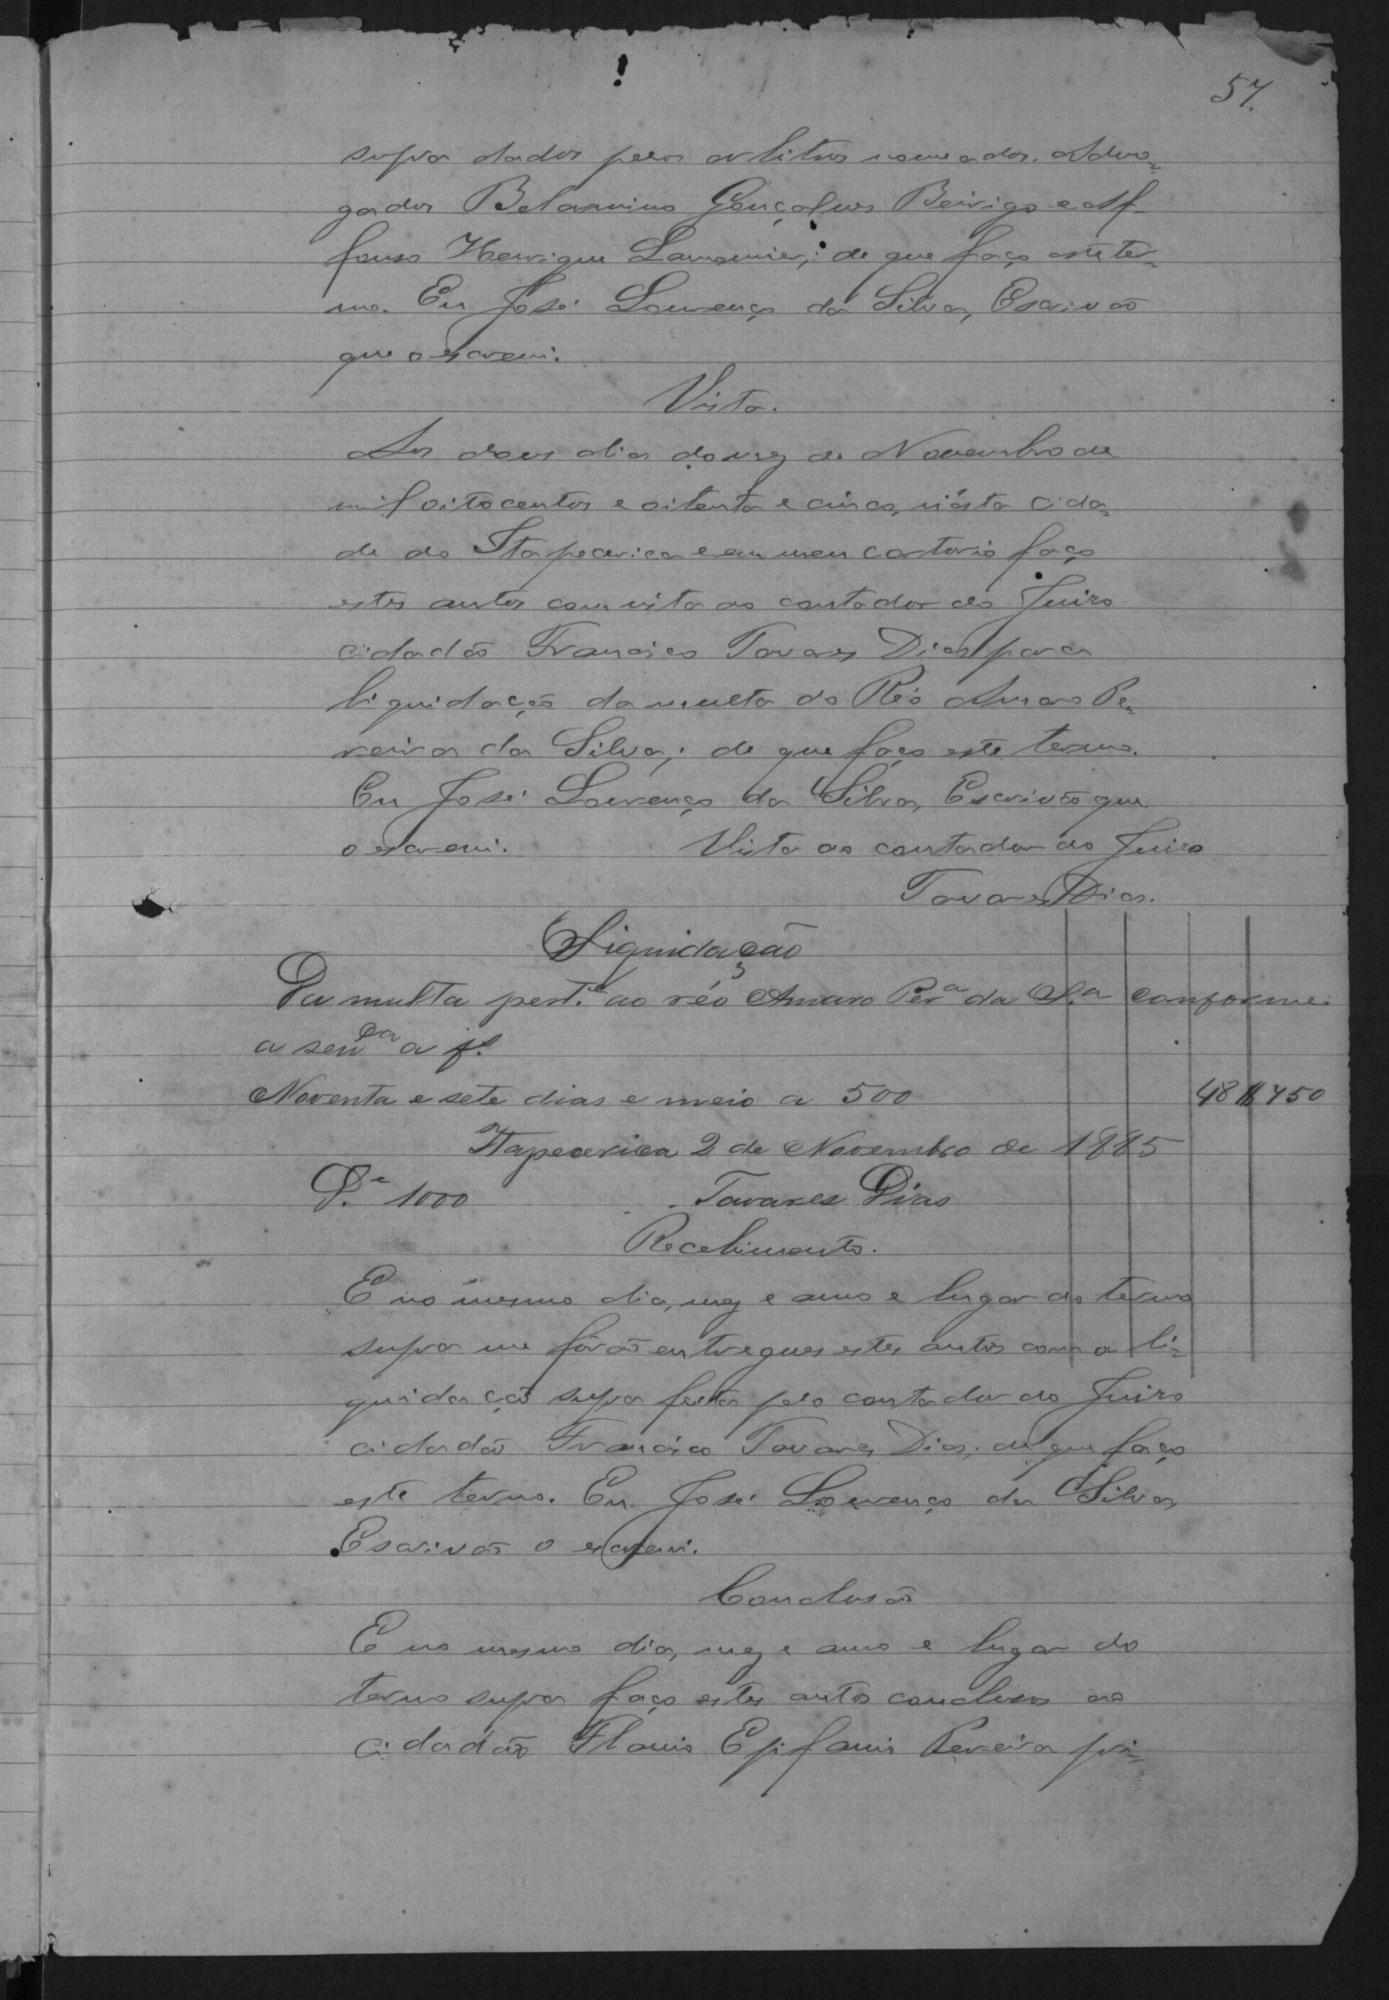 57.
supra dados pelos arbitros nomeados. Advo-
gados Belarmino Gonçalves Beirigo e Af-
fonso Henrique Lamounier; de que faço este ter-
mo. Eu José Lourenço da Silva, Escrivão
que o escrevi.
Vista.
Aos dous dias do mez de Novembro de
mil oitocentos e oitenta e cinco, n'ésta cida-
de de Itapecerica e em meu cartorio faço
estes autos com vista ao contador do Juizo
cidadão Francisco Tavares Dias para
liquidação da multa do Réo Amaro Pe-
reira da Silva; de que faço este termo.
Eu José Lourenço da Silva, Escrivão que
o escrevi. Vista ao contador do Juizo
Tavares Dias.
Liquidação
Da multa pert.e ao réo Amaro Per.a da S.a conforme
a senca a f.
Noventa e sete dias e meio a 500 48$750
Itapecerica 2 de Novembro de 1885
D.e 1000 Tavares Dias
Recebimento.
E no mesmo dia, mez e anno e lugar do termo
supra me fôrão entregues estes autos com a li-
quidação supra feita pelo contador do Juizo
cidadão Francisco Tavares Dias; de que faço
este termo. Eu José Lourenço da Silva,
Escrivão o escrevi.
Conclusão
E no mesmo dia, mez e anno e lugar do
termo supra faço estes autos conclusos ao
cidadão Flavio Epifanio Pereira pri-